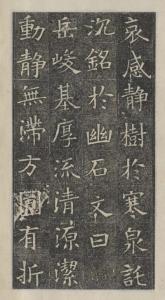 哀感静樹於寒泉託
沉銘於幽石文曰
岳峻基厚流清源潔
動静無滯方圓有折